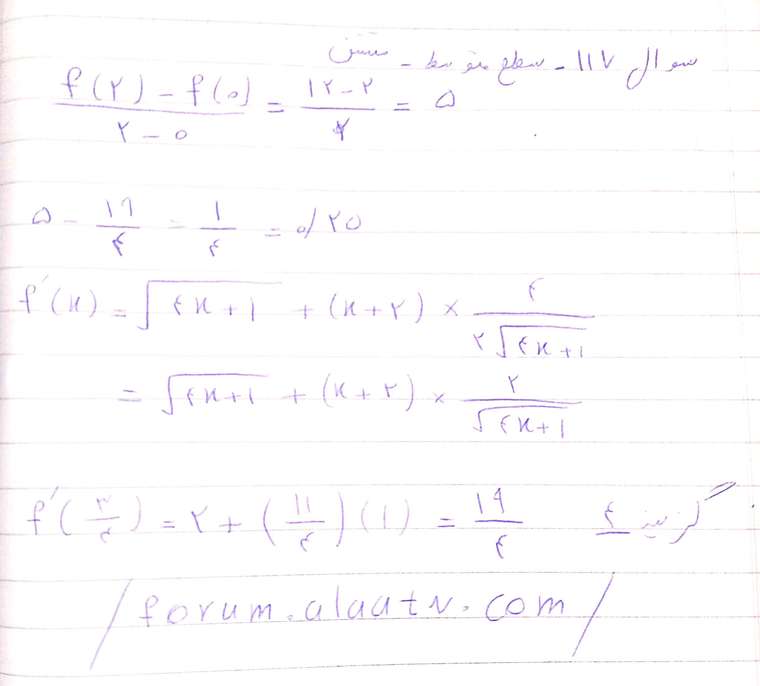 سوال ۱۱۷ - سطح متوسط - مشتق
f(۲) - f(۰) / ۲ - ۰ = ۱۲-۲ / ۲ = ۵
۵ - ۱۹/۴ = ۱/۴ = ۰/۲۵
f'(x) = √(۴x+۱) + (x+۲) × ۴ / ۲√(۴x+۱)
= √(۴x+۱) + (x+۲) × ۲ / √(۴x+۱)
f'(۳/۴) = ۲ + (۱۱/۴)(۱) = ۱۹/۴ گزینه ۴
/ forum.alaatv.com /